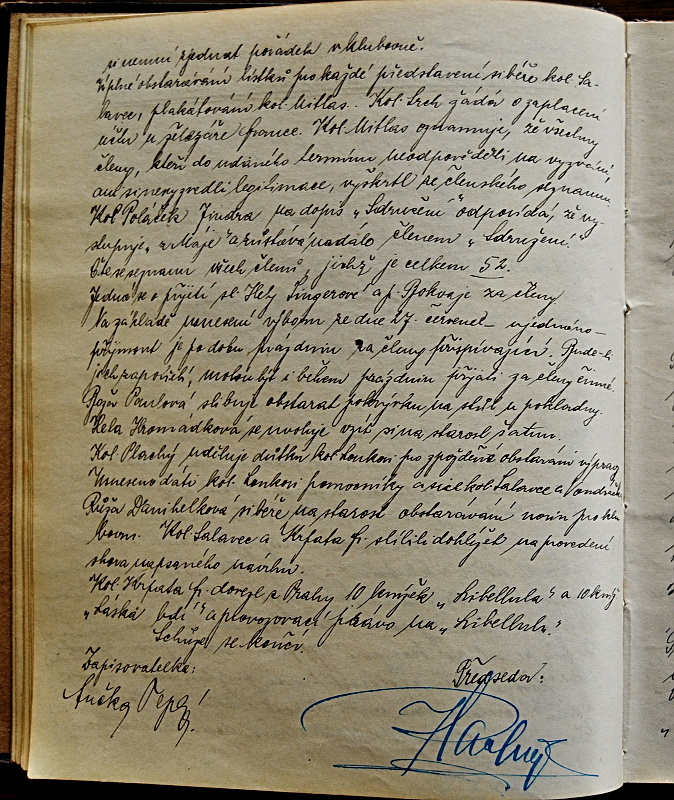 si nemíní zjednat pořádek v klubovně.
Úplné obstarávání lístků pro každé představení si béře kol. Sa-
lavec, plakátování kol. Mitlas. Kol. Srch žádá o zaplacení
účtu u železáře France. Kol. Mitlas oznamuje, že všechny
členy, kteří do udaného termínu neodpověděli na vyzvání,
ani si nevyzvedli legitimace, vyškrtl ze členského seznamu.
Kol. Poláček Jindra na dopis „Sdružení“ odpovídá, že vy-
stupuje „z Máje“ a zůstává nadále členem „Sdružení.“
Čte se seznam všech členů, jichž je celkem 52.
Jedná se o přijetí sl. Hely Singerové a p. za členy
Na základě usnesení výboru ze dne 27. července ujednáno
přijmout je po dobu prázdnin za členy přispívající. Bude-li
jich zapotřebí, mohou být i během prázdnin přijati za členy činné.
Pavlová slibuje obstarat pokrývku na stůl u pokladny.
Hela Hromádková se uvoluje vzíti si na starost šatnu.
Kol. Plachý uděluje důtku kol. Lonkovi pro zpožděné obstarání výprav.
Usneseno dáti kol. Lonkovi pomocníky a sice kol. Salavce a
Růža Danihelková si béře na starost obstarávání novin pro klu-
bovnu. Kol. Salavec a Krfata fr. slíbili dohlížet na provedení
shora napsaného návrhu.
Kol. Krfata fr. dovezl z Prahy 10 knížek „Libellula“ a 10 knih
„Láska bdí“ a provozovací právo na „Libellulu.“
Schůze se končí.
Zapisovatelka: Předseda:
Plachý